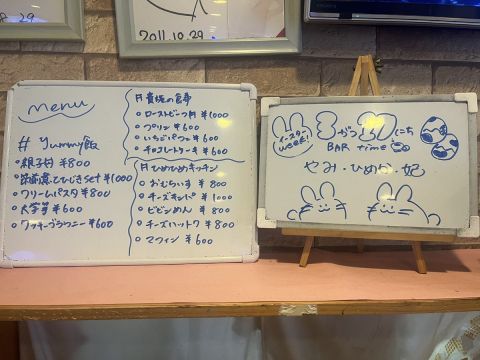 2011.10.29
menu
# yummy飯
○親子丼 ¥800
ひじきset ¥1000
○クリームパスタ ¥800
○大学芋 ¥600
○クッキーブラウニー ¥600
# 貴族の食事
○ローストビーフ丼 ¥1000
○プリン ¥600
○いちごパフェ ¥600
○チョコレートケーキ ¥600
# ひめひめキッチン
○おむらいす ¥800
○チーズキンパ ¥1000
○ビビンめん ¥800
○チーズハットク ¥800
○マフィン ¥600
イースター
week!
3がつ20にち
BAR time
やみ・ひめか・妃